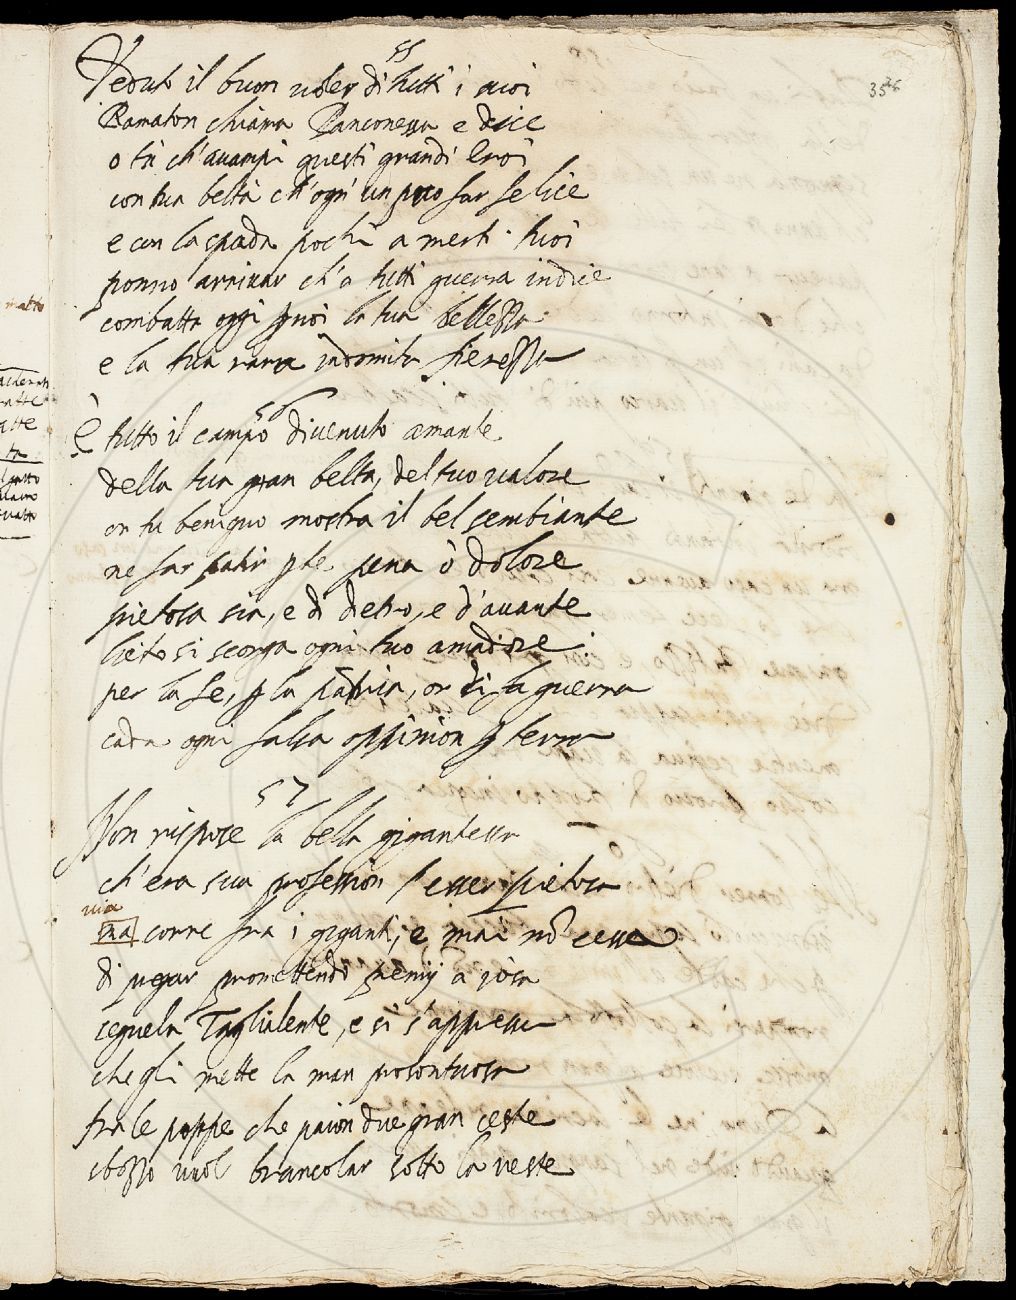 35 36
55
Veduto il buon voler di tutti i suoi
Bamaton chiama Panconessa e dice
o tu ch'avampi questi grandi Eroi
con tua beltà ch'ogn'un puo far felice
e con la spada pochi a merti tuoi
ponno arrivar ch'a tutti guerra indice
combatta oggi p noi la tua bellezza
e la tua rara indomita fierezza
56
È tutto il campo divenuto amante
della tua gran belta, del tuo valore
or tu benigno mostra il bel sembiante
ne far patir p te pena ò dolore
pietosa sia, e di detro, e d'avante
lieto si scorga ogni tuo amadore
per la fe, p la patria, or di la guerra
cada ogni falsa oppinion p terra
57
Non rispose la bella gigantessa
ch'era sua profession l'esser pietosa
via
ma corre fra i giganti, e mai nō cessa
di pregar promettendo premij a iosa
seguela Tagliolente, e si s'appressa
che gli mette la man prosontuosa
fra le poppe che paion due gran ceste
vuol brancolar sotto la veste
matto